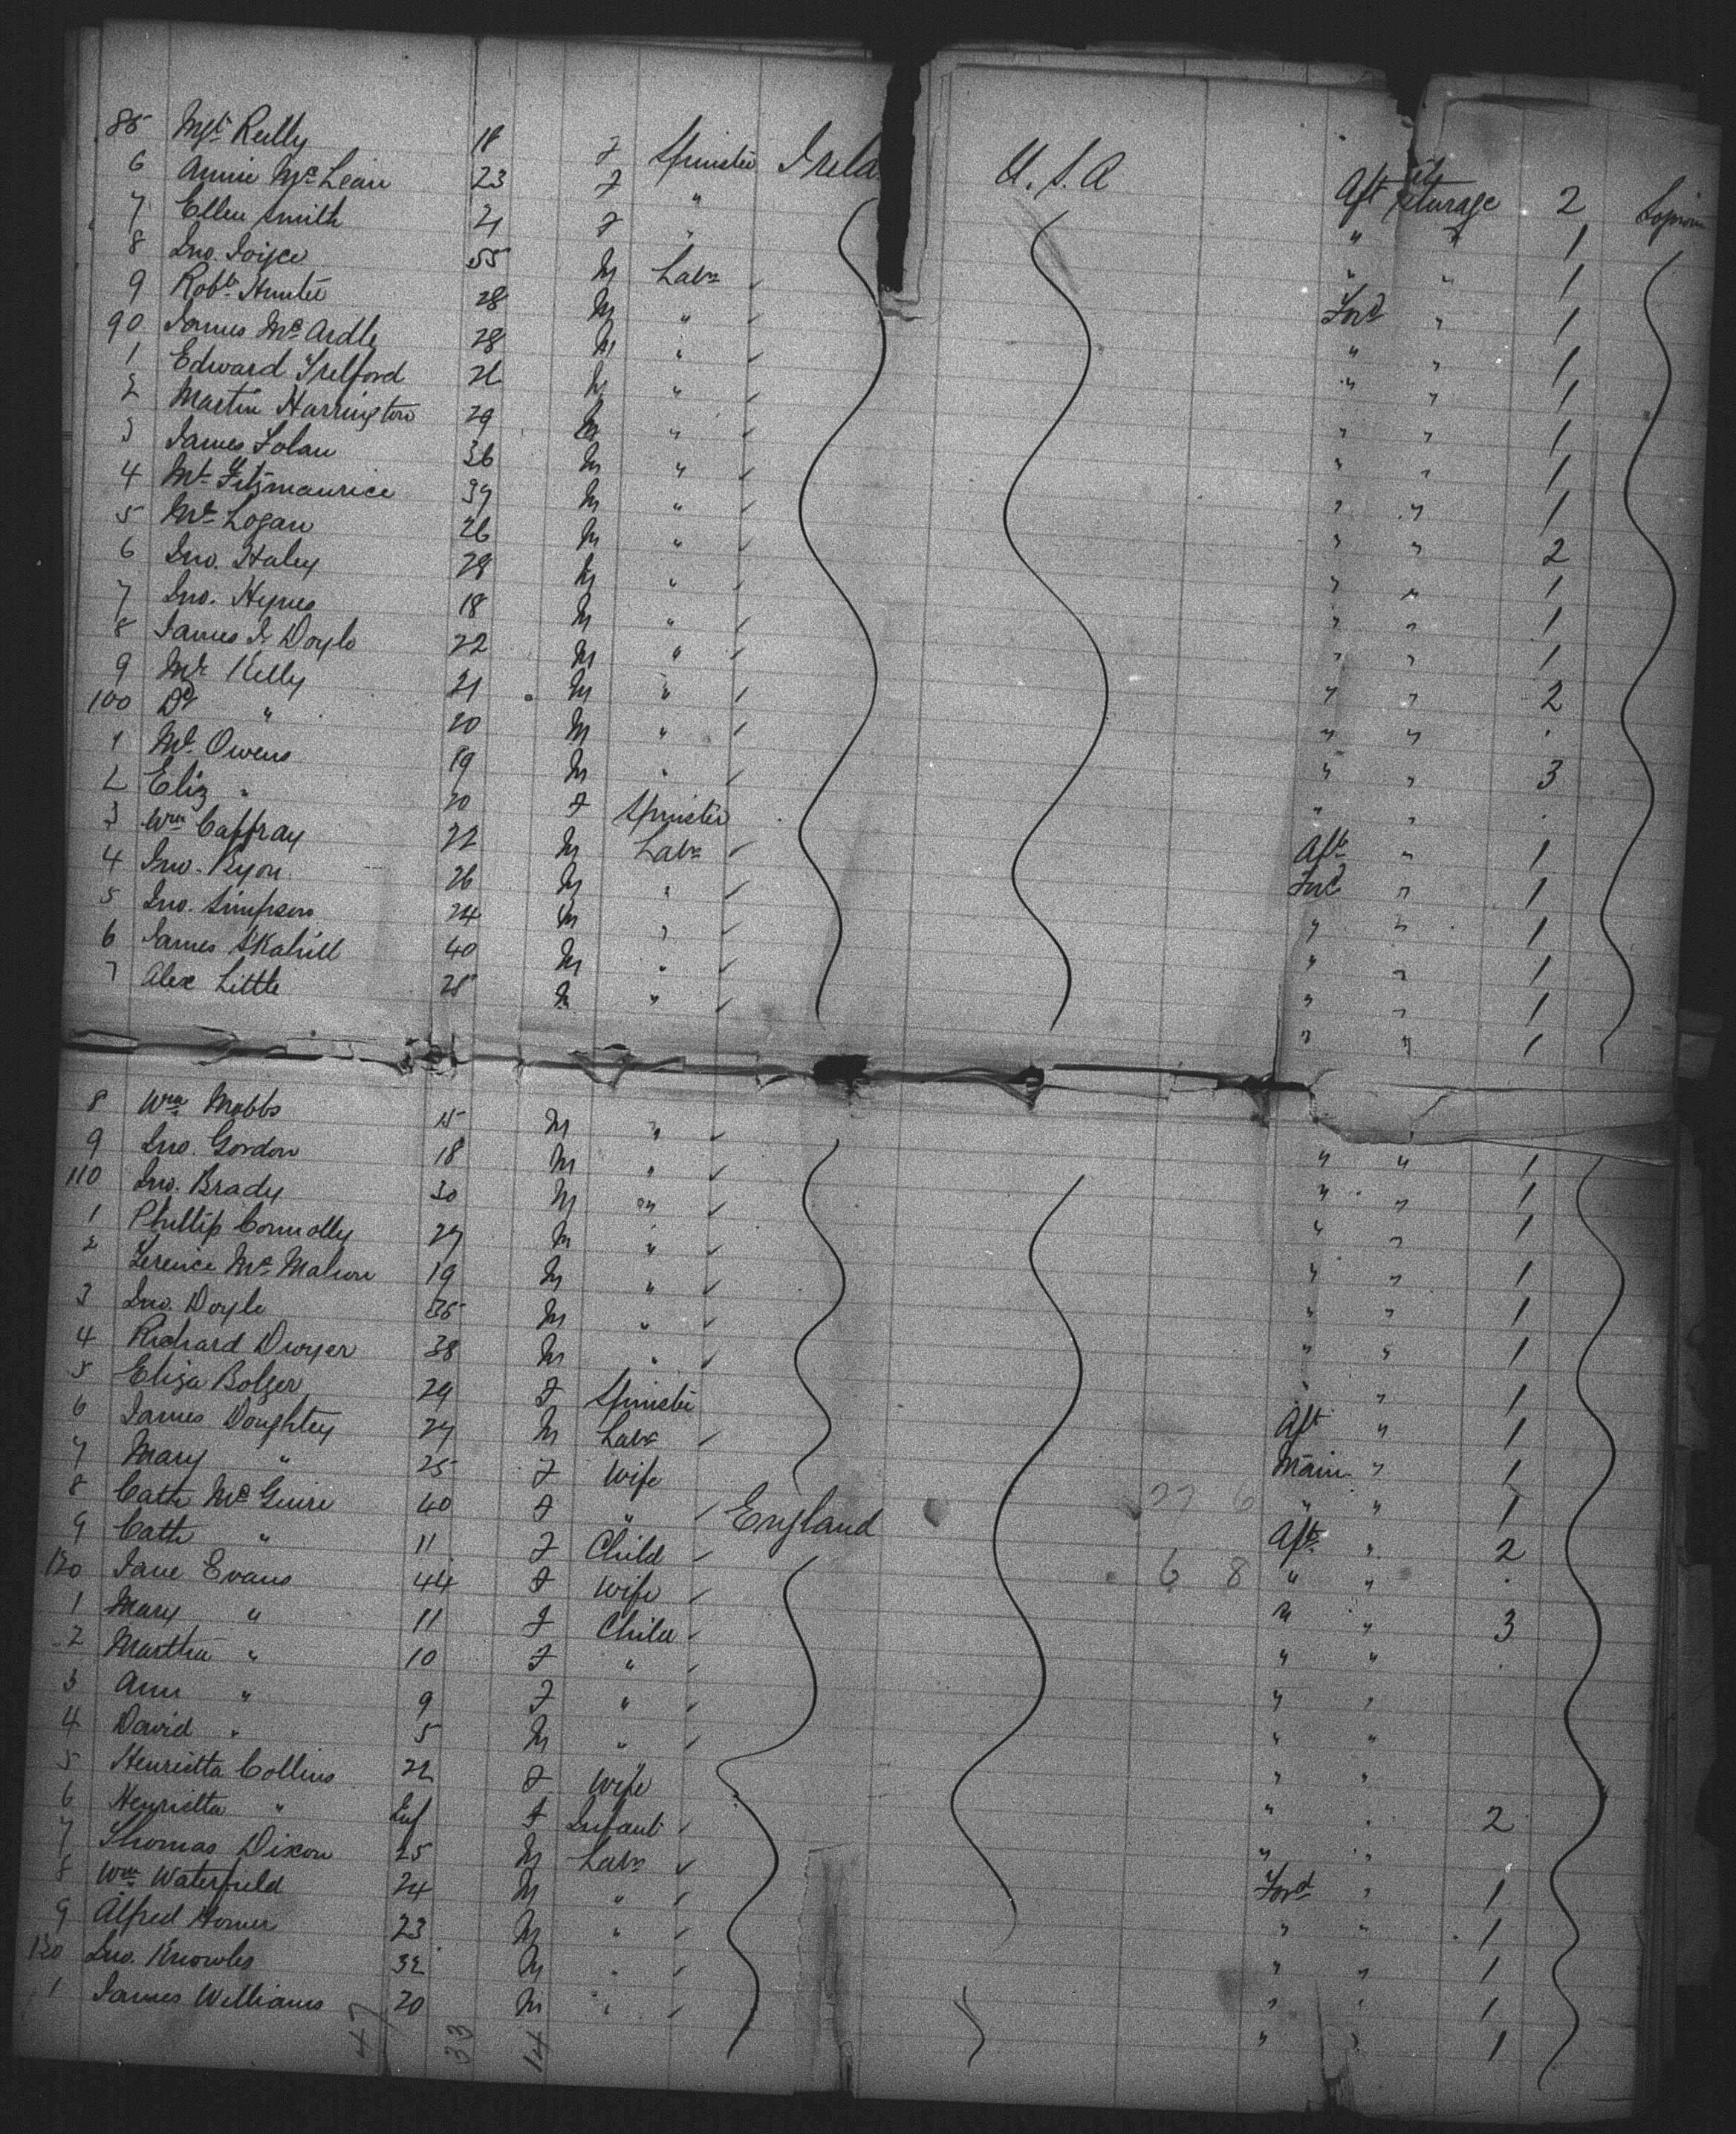 85 Mgt Reilly 18 F Spinster Irela U.S.A Aft Steerage 2
6 Annie McLean 23 F " " " 1
7 Ellen Smith 21 F " " " 1
8 Jno. Joyce 55 M Labr Ford " 1
9 Robt Hunter 28 M " " " 1
90 James McArdle 28 M " " " 1
1 Edward Telford 26 M " " " 1
2 Martin Harrington 29 M " " " 1
3 James Folan 36 M " " " 1
4 Mt Fitzmaurice 37 M " " " 2
5 Mt Logan 26 M " " " 1
6 Jno. Haley 28 M " " " 1
7 Jno. Hynes 18 M " " " 1
8 James J. Doyle 22 M " " " 2
9 Mt Kelly 21 M " " "
100 Do " 20 M " " " 3
1 Mt Owens 19 M " " "
2 Eliz " 20 F Spinster Aft " 1
3 Wm Caffray 22 M Labr Ford " 1
4 Jno. Ryon 26 M " " " 1
5 Jno. Simpson 24 M " " " 1
6 James Skahill 40 M " " " 1
7 Alex Little 28 M " " " 1
8 Wm Mobbs 15 M " " " 1
9 Jno. Gordon 18 M " " " 1
110 Jno. Brady 30 M " " " 1
1 Phillip Connolly 27 M " " " 1
2 Terence McMahon 19 M " " " 1
3 Jno. Doyle 35 M " " " 1
4 Richard Dwyer 38 M " " " 1
5 Eliza Bolger 29 F Spinster Aft " 1
6 James Doughtey 27 M Labr Main " 1
7 Mary " 25 F Wife " " 1
8 Cath McGuire 40 F " England 27 6 Aft " 2
9 Cath " 11 F Child 6 8 " "
120 Jane Evans 44 F Wife " " 3
1 Mary " 11 F Child " "
2 Martha " 10 F " " "
3 Ann " 9 F " " "
4 David " 5 M " " "
5 Henrietta Collins 22 F Wife " " 2
6 Henrietta " Inf F Infant " "
7 Thomas Dixon 25 M Labr Ford " 1
8 Wm Waterfield 24 M " " " 1
9 Alfred Horner 23 M " " " 1
130 Jno. Knowles 32 M " " " 1
1 James Williams 20 M " " " 1
47 33 14